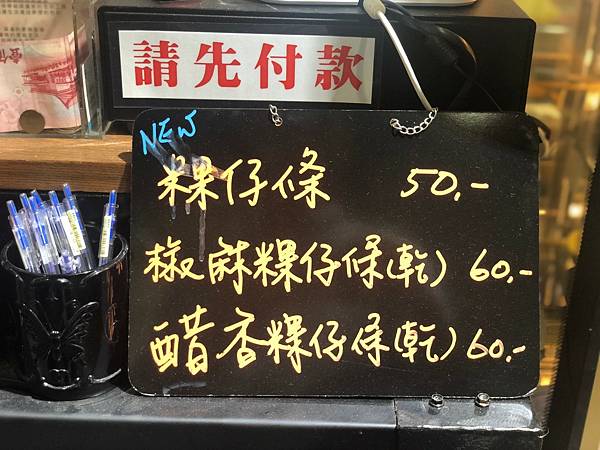 請先付款
NEW
粿仔條 50.-
椒麻粿仔條(乾) 60.-
醋香粿仔條(乾) 60.-